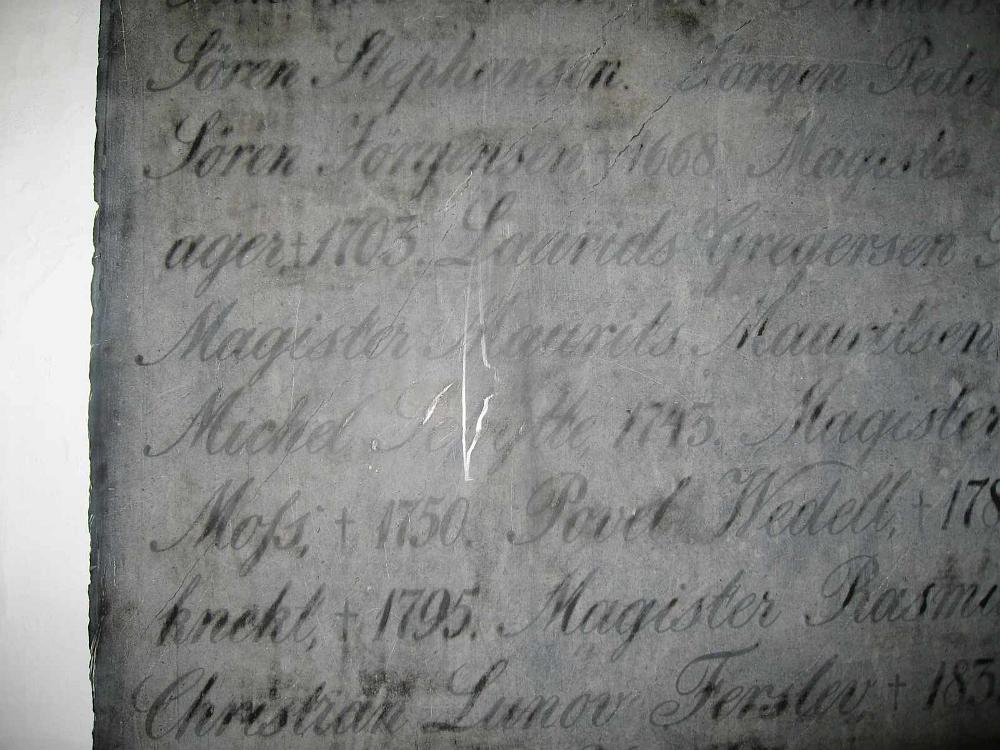 Sören Stephansen. Jörgen Peder
Sören Jörgensen, † 1668. Magister
ager † 1703. Laurids Gregersen
Magister Maurits Mauritsen
Michel 1743. Magister
Moſs, † 1750. Povel Wedell, † 178
knekt, † 1795. Magister Rasmu
Christian Lunov Ferslev † 183